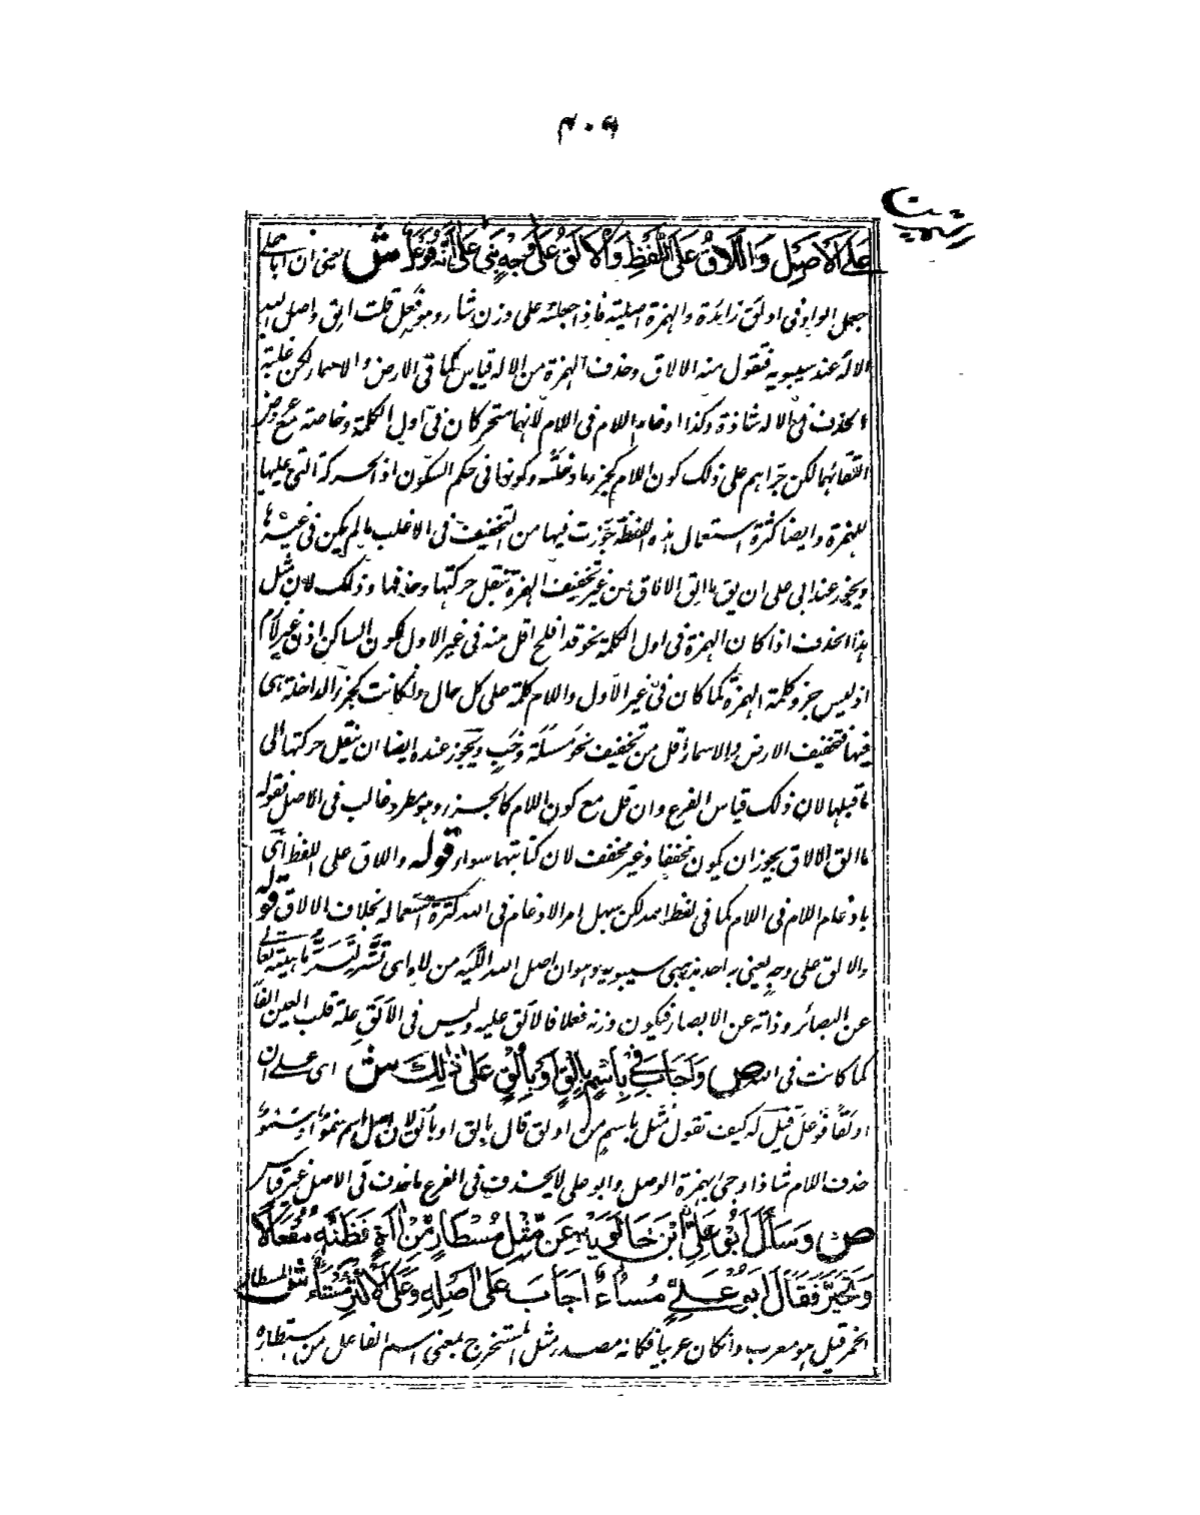 ٤٠٩
عَلَى الْاَصْلِ وَاللَّاقُ عَلَى اللَّفْظِ وَالْاَلَقُ عَلَى وَجْهٍ بَنَى عَلَى اَنَّهُ فَوْعَلٌ ش يعنى ان ابا على
جعل الواو فى اولق زايدة والهمزة اصلية فاذا جعلته على وزن شاء وهو فَعِل قلت الِق واصل الله
الالٰه عند سيبويه فتقول منه الالاق وحذف الهمزة من الاله قياس كما فى الارض والاسماء لكن غلبة
الحذف فى الاله شاذة وكذا ادغام اللام فى اللام لانهما متحركان فى اول الكلمة وخاصة مع عروض
التقائهما لكن جرّاهم على ذلك كون اللام كجزء ما دخلته وكونها فى حكم السكون اذ الحركة التى عليها
للهمزة وايضا كثرة استعمال هذه اللفظة جوّزت فيها من التخفيف فى الاغلب ما لم يكن فى غيرها
ويجوز عند ابى على ان يق ما الِق الالاق من غير تخفيف الهمزة بنقل حركتها وحذفها وذلك لان مثل
هذا الحذف اذا كان الهمزة فى اول الكلمة نحو قد افلح اقل منه فى غير الاول لكون الساكن اذن غير لازم
اذ ليس جزء كلمة الهمزة كما كان فى غير الاول واللام كلمة على كل حال وان كانت كجزء الداخلة هى
فيها فتخفيف الارض والاسماء اقل من تخفيف نحو مسئلة وخَبٍ ويجوز عنده ايضا ان ينقل حركتها الى
ما قبلها لان ذلك قياس الفرع وان قل مع كون اللام كالجزء وهو مطرد غالب فى الاصل فقوله
ما الِق الالاق يجوز ان يكون مخففا وغير مخفف لان كتابتهما سواء قوله واللاق على اللفظ اى
بادغام اللام فى اللام كما فى لفظ الله لكن سهل امر الادغام فى الله كثرة استعماله بخلاف الالاق قوله
والالق على وجه يعنى به احد مذهبى سيبويه وهو ان اصل الله اللَّيَه من لاه اى تستّر لتستّر ماهيته تعالى
عن البصائر وذاته عن الابصار فيكون وزنه فعلا فالالق عليه وليس فى الاَلَق علة قلب العين الفا
كما كانت فى الله ص وَاَجَابَ فِى بِاسْمٍ بِاِلْقٍ اَوْ بِاُلْقٍ عَلَى ذٰلِكَ ش اى على ان
اولقا فوعل قيل له كيف تقول مثل باسم من اولق قال بالق او بالق لان اصل اسم سِمْوٌ او سُمْوٌ
حذف اللام شاذا وجئ بهمزة الوصل وابو على لا يحذف فى الفرع ما حذف فى الاصل غير قياس
ص وَسَأَلَ اَبُو عَلِىٍّ ابْنَ خَالَوَيْهِ عَنْ مِثْلِ مُسْطَارٍ مِنْ اٰءَةٍ فَظَنَّهُ مُفْعَالًا
وَتَحَيَّرَ فَقَالَ اَبُو عَلِىٍّ مُسْاٰءٌ اَجَابَ عَلَى اَصْلِهِ وَعَلَى الْاَكْثَرِ مُسْتَاٰءٌ ش المسطار
الخمر قيل هو معرب وان كان عربيا فكانه مصدر مثل المستخرج بمعنى اسم الفاعل من استطاره